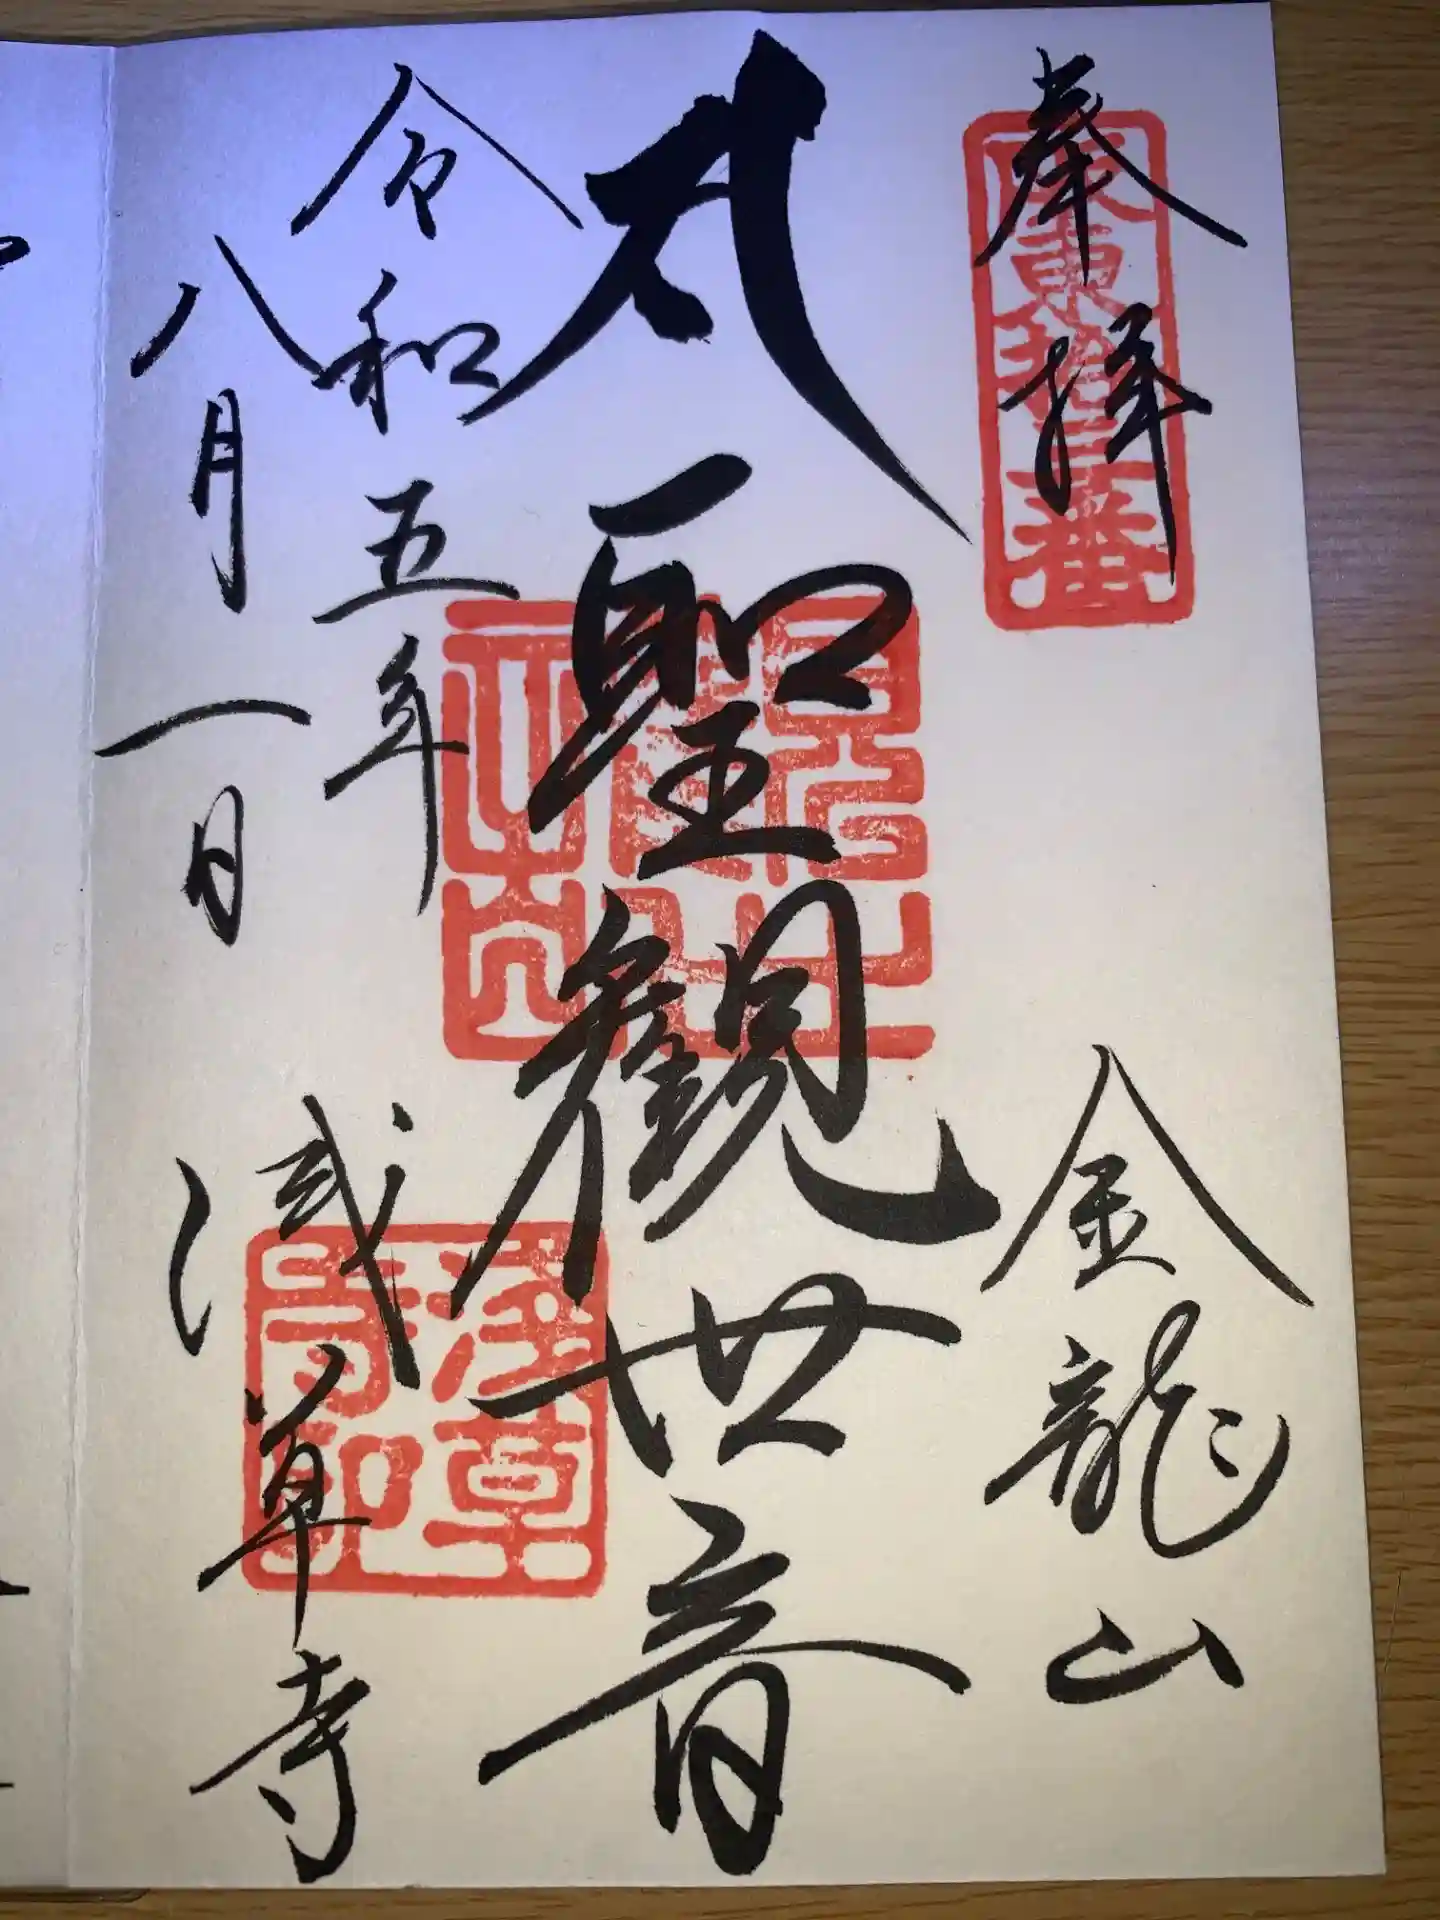 奉拝
坂東拾三番
金龍山
聖観世音
令和五年
八月一日
浅草寺
浅草寺印